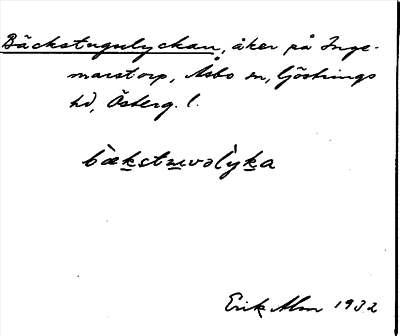 Bäckstuguhyckan, åker på Inge-
marstorp, Åsbo sn, Göstrings
hd, Österg. l.
bækstɯvəlyka
Erik Alm 1932